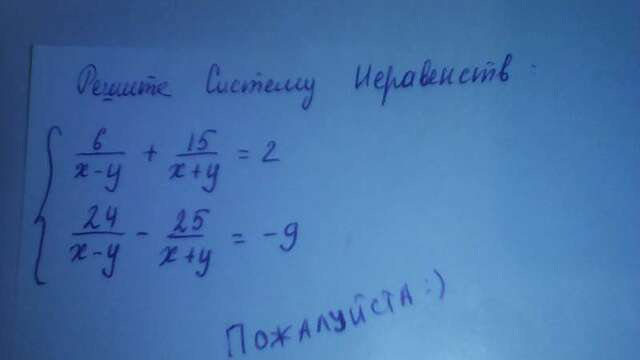 Решите Систему Неравенств.
6/(x-y) + 15/(x+y) = 2
24/(x-y) - 25/(x+y) = -9
ПОЖАЛУЙСТА :)